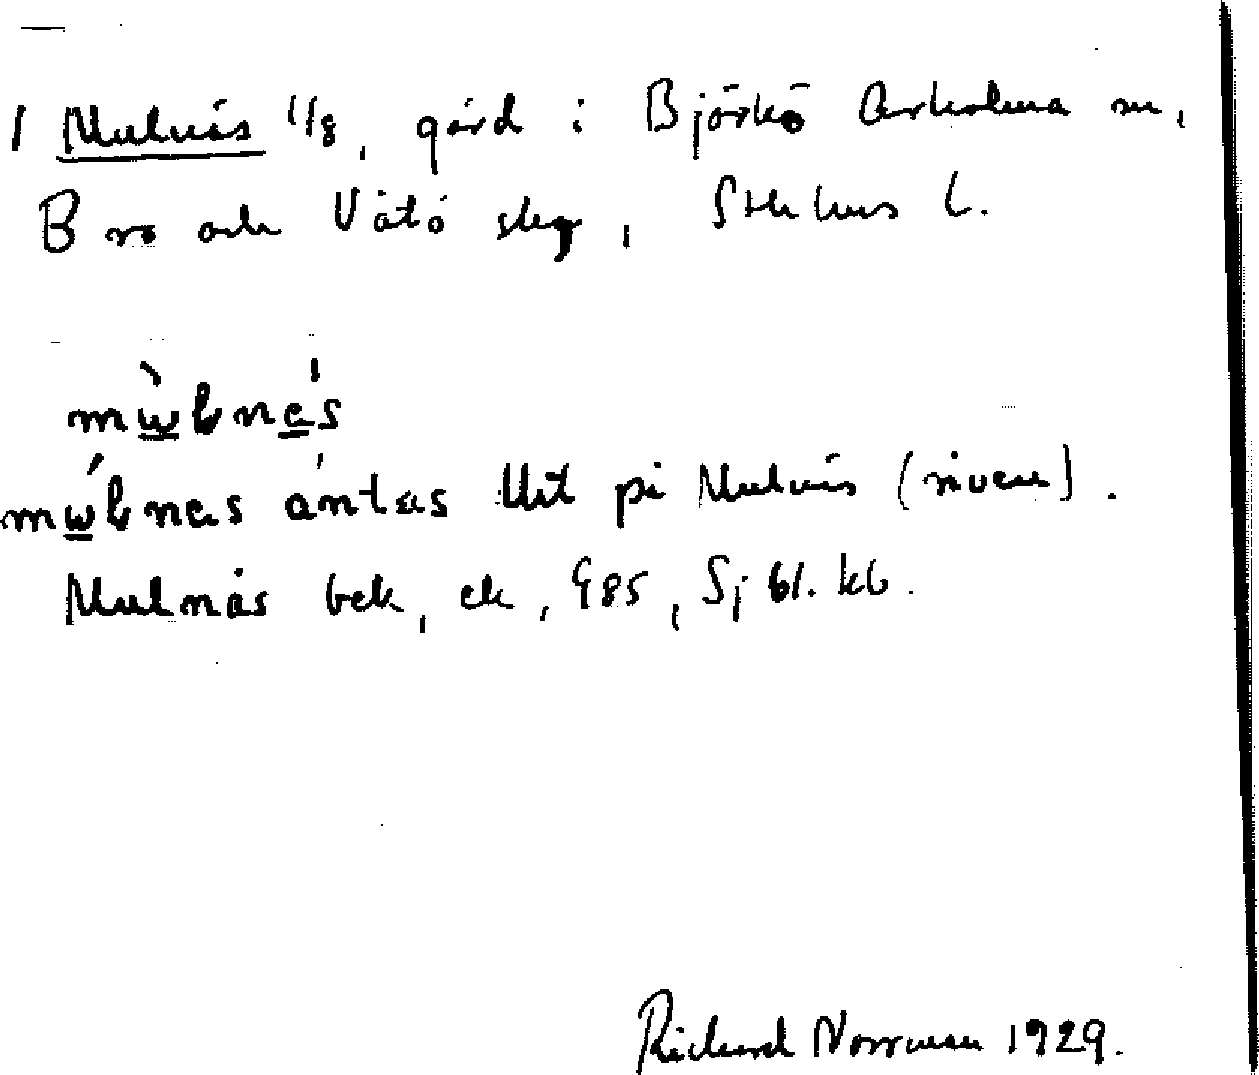 1 Mulnäs 1/8, gård i Björkö Arholma sn,
Bro och Vätö skg, Sthlms l.
mùlnäs
múlnas ántas Utt på Mulnäs (niveu).
Mulnäs bek, ek, G85, Sj 61. kb.
Richard Norrman 1929.